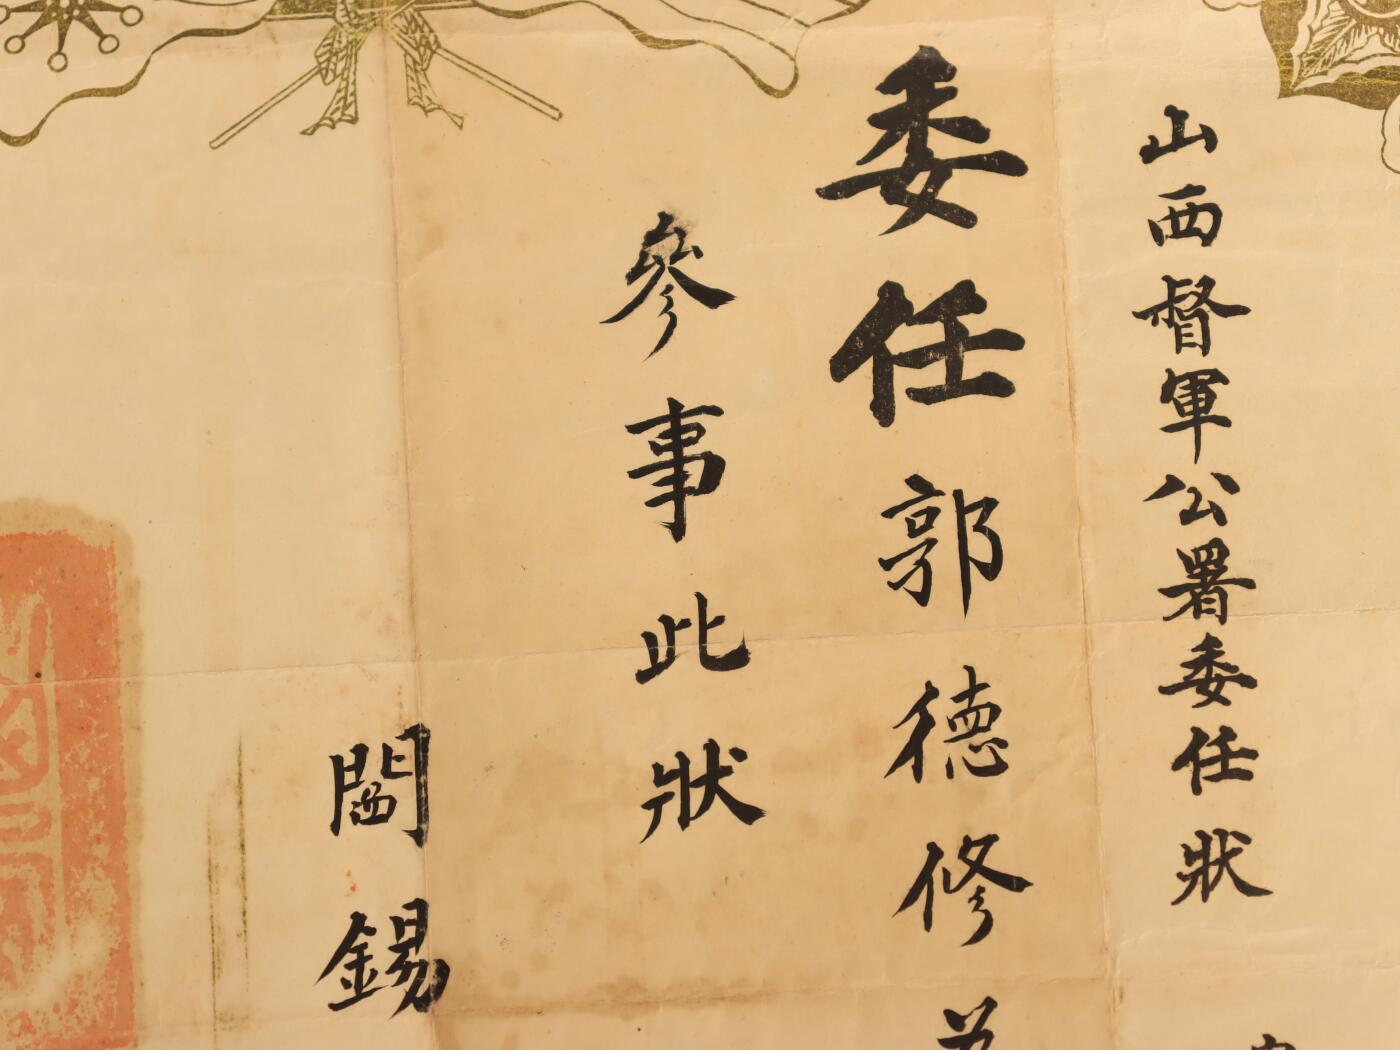 山西督軍公署委任狀
委任郭德修
參事此狀
閻錫